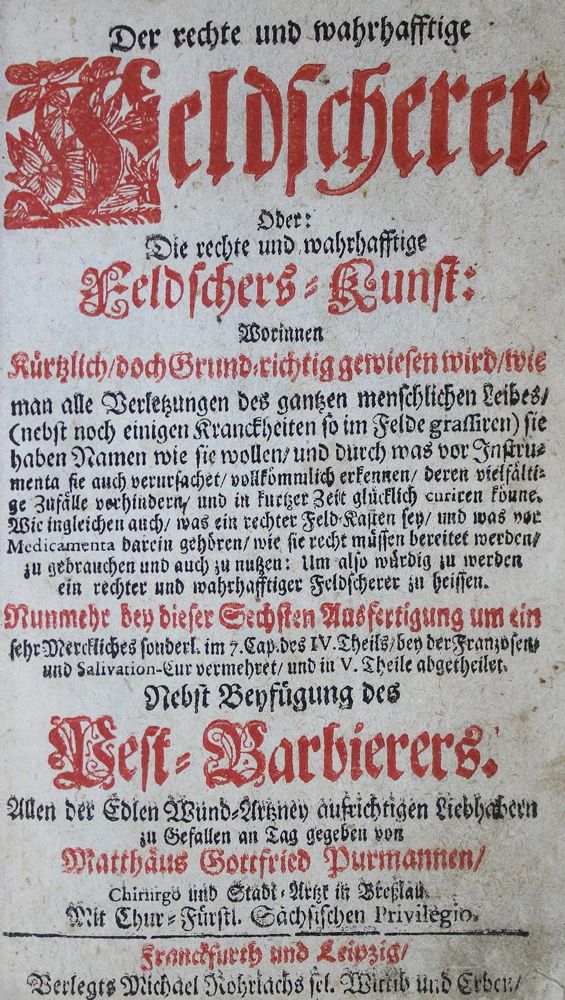 Der rechte und wahrhafftige
Feldscherer
Oder:
Die rechte und wahrhafftige
Feldschers-Kunst:
Worinnen
Kürtzlich/doch Grund-richtig gewiesen wird/wie
man alle Verletzungen des gantzen menschlichen Leibes/
(nebst noch einigen Kranckheiten so im Felde grassiren) sie
haben Namen wie sie wollen/und durch was vor Instru-
menta sie auch verursachet/ vollkömmlich erkennen/ deren vielfälti-
ge Zufälle verhindern/ und in kurtzer Zeit glücklich curiren könne.
Wie ingleichen auch/ was ein rechter Feld-Kasten sey/ und was vor
Medicamenta darein gehören/ wie sie recht müssen bereitet werden/
zu gebrauchen und auch zu nutzen: Um also würdig zu werden
ein rechter und wahrhafftiger Feldscherer zu heissen.
Nunmehr bey dieser Sechsten Ausfertigung um ein
sehr Merckliches sonderl. im 7. Cap. des IV. Theils/ bey der Franzosen-
und Salivation-Cur vermehret/ und in V. Theile abgetheilet.
Nebst Beyfügung des
Pest-Barbierers.
Allen der Edlen Wund-Artzney aufrichtigen Liebhabern
zu Gefallen an Tag gegeben von
Matthäus Gottfried Purmannen/
Chirurgo und Stadt-Artzt in Breßlau.
Mit Chur-Fürstl. Sächsischen Privilegio.
Franckfurth und Leipzig/
Verlegts Michael Rohrlachs sel. Wittib und Erben/